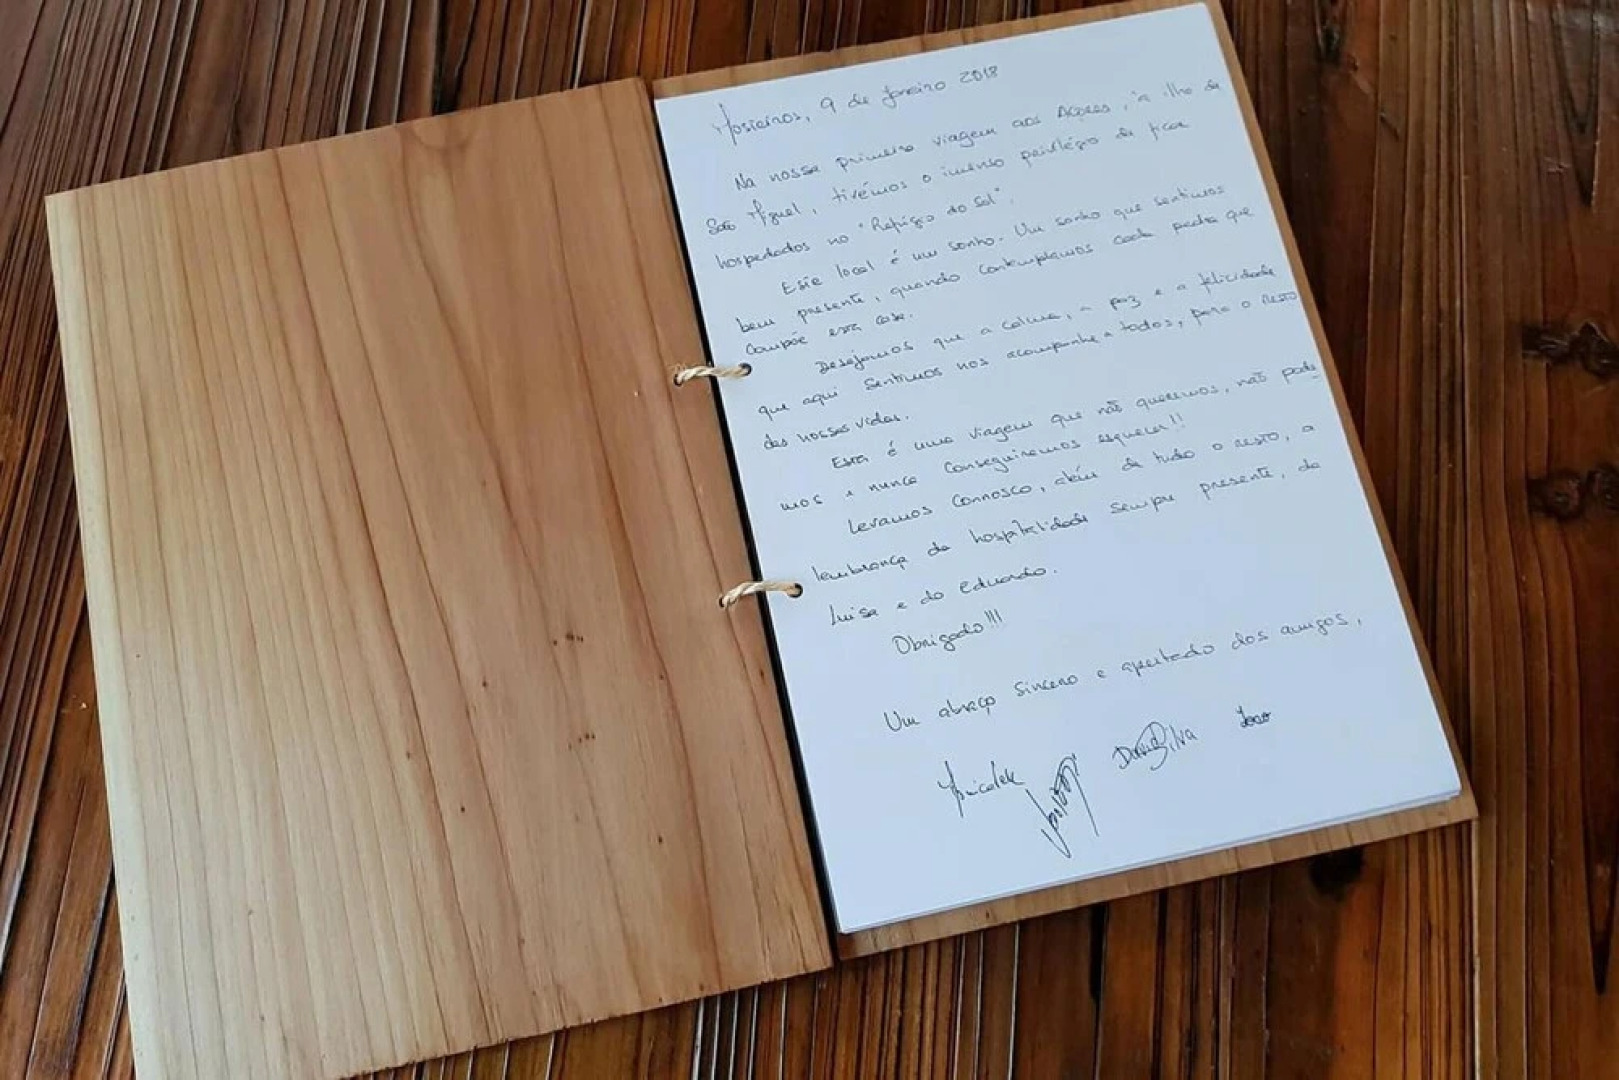 Mosteiros, 9 de Janeiro 2018
Na nossa primeira viagem aos Açores, à ilha de
São Miguel, tivémos o imenso privilégio de ficar
hospedados no "Refúgio do Sol".
Este local é um sonho. Um sonho que sentimos
bem presente, quando contemplamos cada pedra que
compõe esta casa.
Desejamos que a calma, a paz e a felicidade
que aqui sentimos nos acompanhe a todos, para o resto
das nossas vidas.
Esta é uma viagem que não queremos, não pode-
mos e nunca conseguiremos esquecer!!
Levamos connosco, além de tudo o resto, a
lembrança da hospitalidade sempre presente, da
Luisa e do Eduardo.
Obrigado!!!
Um abraço sincero e apertado dos amigos,
Silva